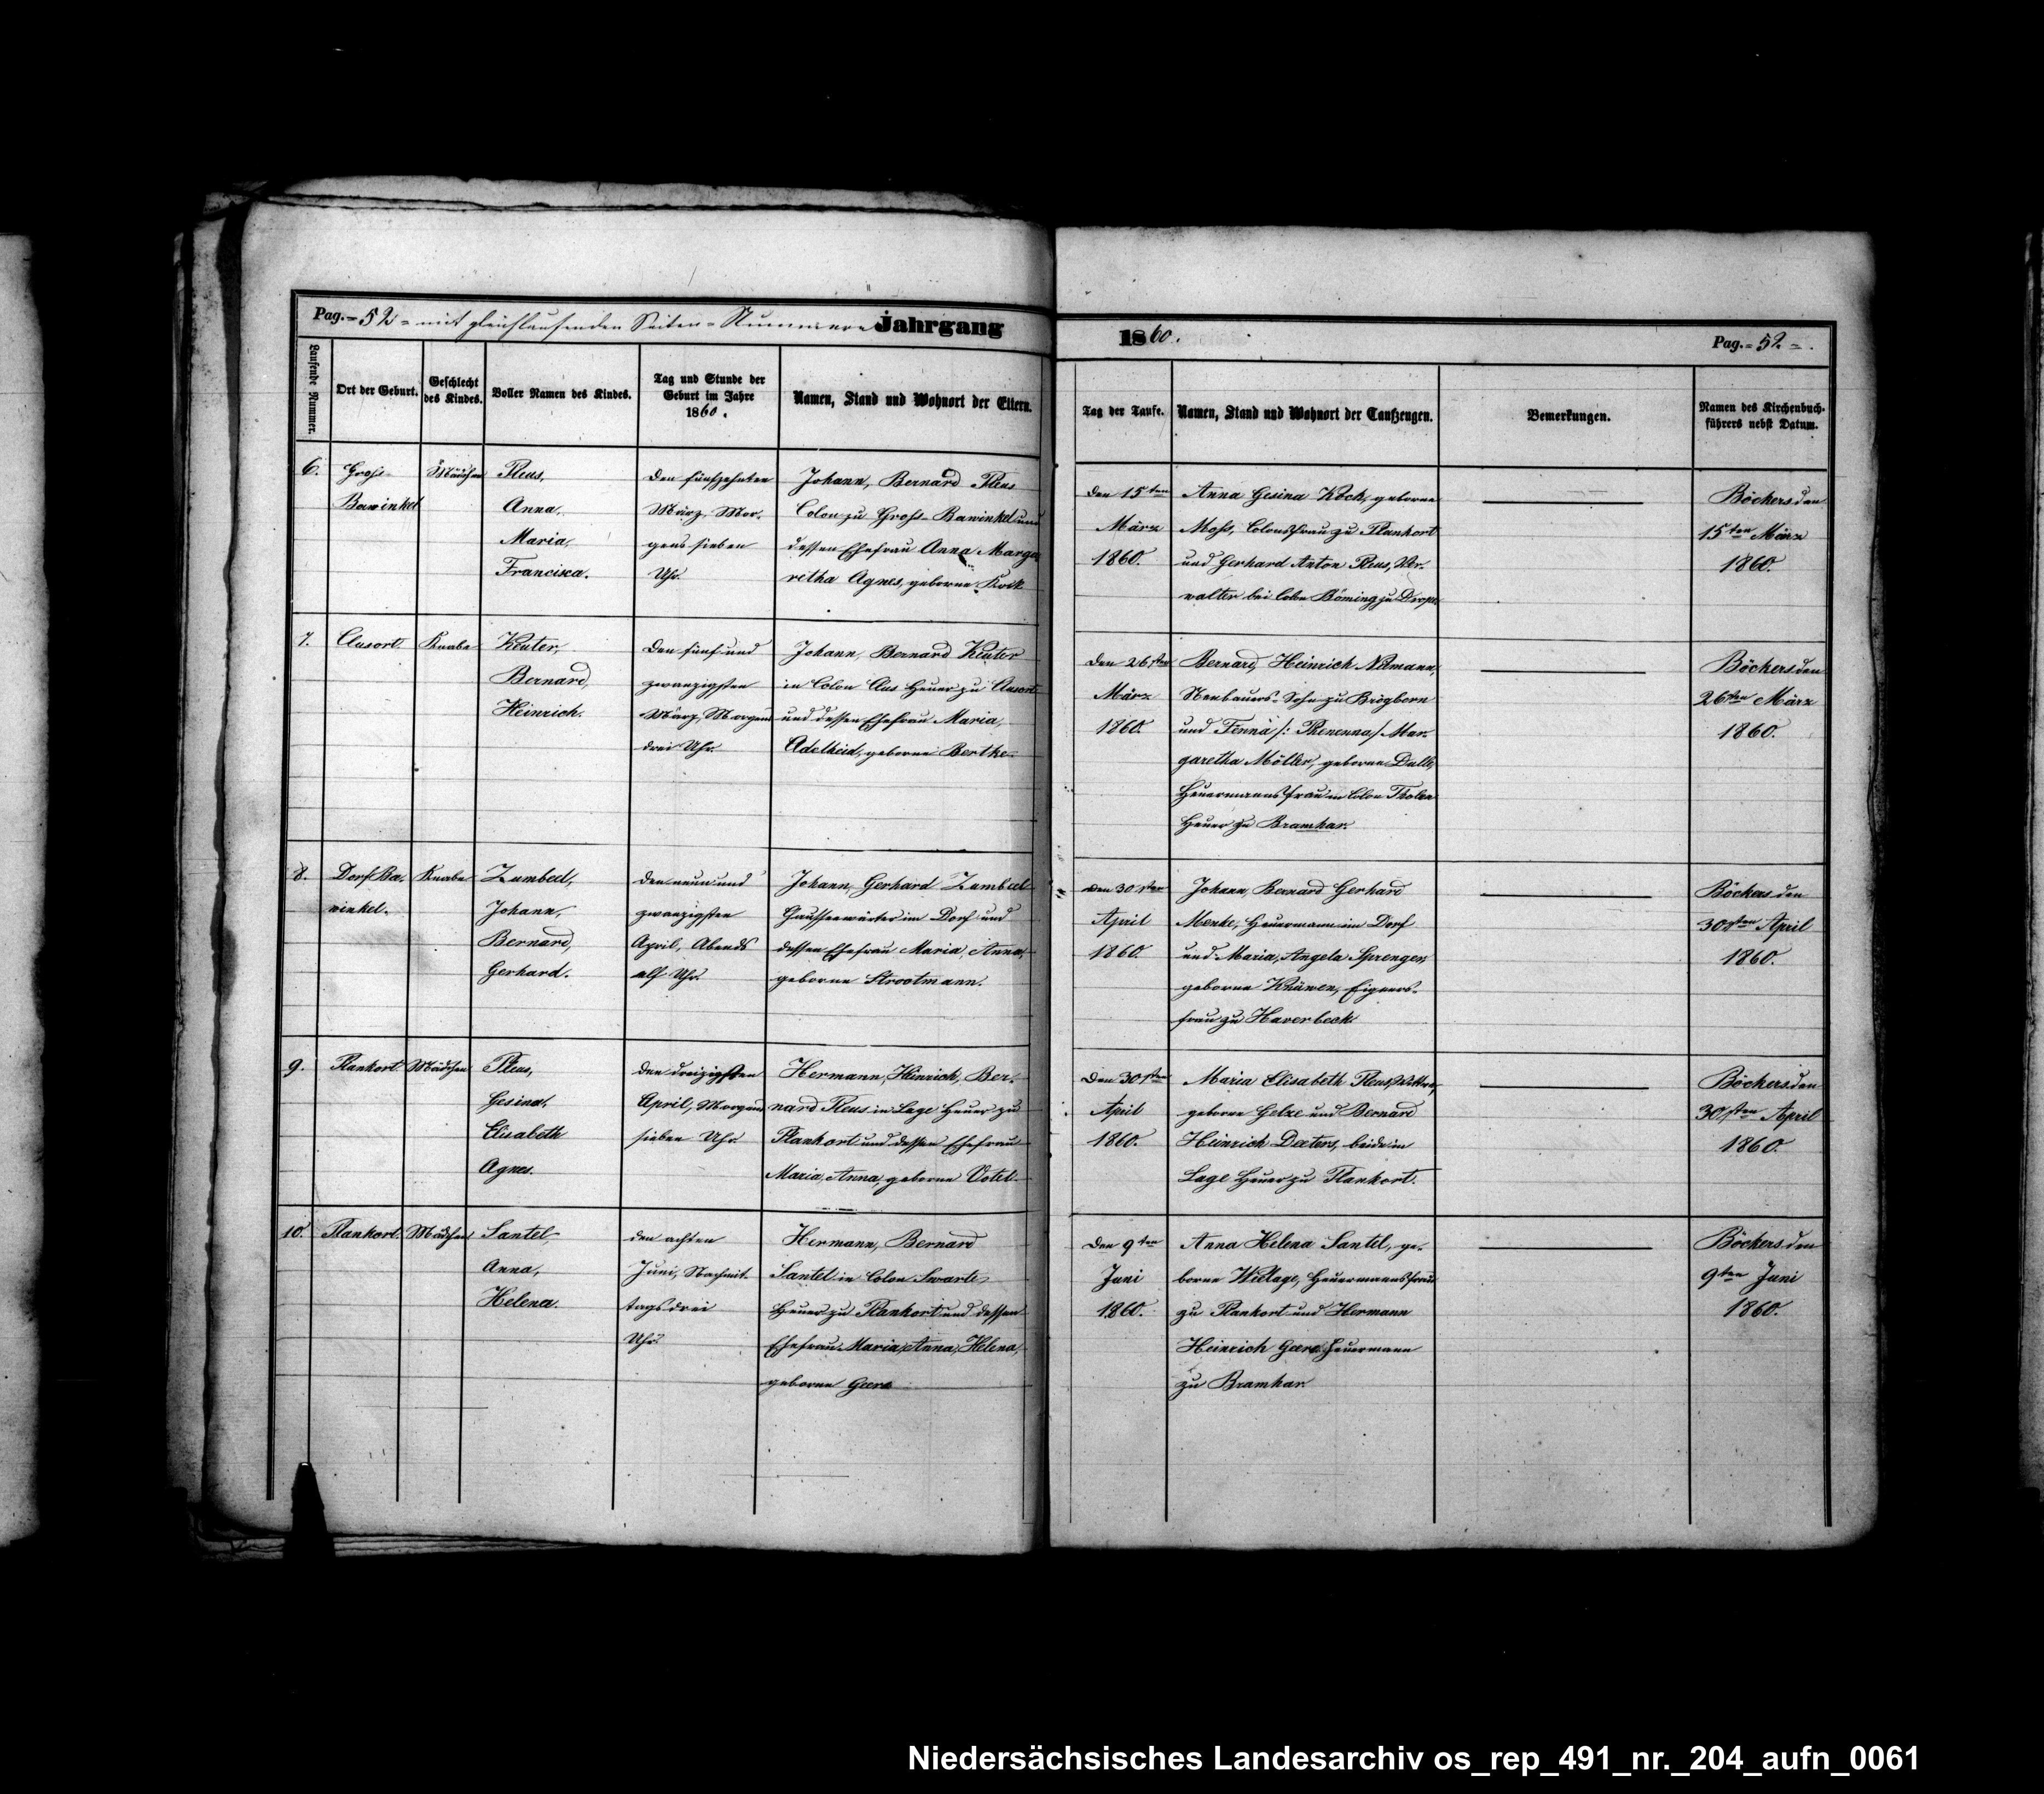 Pag. = 52 = mit gleichlaufenden Seiten-Nummeren Jahrgang
1860.
Pag. = 52 = .
Laufende Nummer.
Ort der Geburt.
Geschlecht
des Kindes.
Voller Namen des Kindes.
Tag und Stunde der
Geburt im Jahre
1860.
Namen, Stand und Wohnort der Eltern.
Tag der Taufe.
Namen, Stand und Wohnort der Taufzeugen.
Bemerkungen.
Namen des Kirchenbuch-
führers nebst Datum.
6.
Gross-
Bawinkel
Mädchen
Pleus,
Anna,
Maria,
Francisca.
den fünfzehnten
März, Mor-
gens sieben
Uhr.
Johann, Bernard Pleus
Colon zu Gross-Bawinkel und
dessen Ehefrau Anna Marga-
retha Agnes, geborne Kwik
den 15ten
März
1860.
Anna Gesina Kock, geborne
Moss, Colonsfrau zu Plankort
und Gerhard Anton Pleus, Ver-
walter bei Colon Böming zu Drope.
Böckers den
15ten März
1860.
7.
Clusort.
Knabe
Keuter,
Bernard,
Heinrich.
den fünf und
zwanzigsten
März, Morgens
drei Uhr.
Johann, Bernard Keuter
in Colon Clus Heuer zu Clusort
und dessen Ehefrau Maria,
Adelheid, geborne Bertke.
den 26sten
März
1860.
Bernard, Heinrich Nermann,
Neubauers-Sohn zu Brögbern
und Fenna /: Thenenna / Mar-
garetha Möller, geborne Dulle,
Heuermannsfrau in Colon Tholen
Heuer zu Bramhar.
Böckers den
26ten März
1860.
8.
Dorf Ba-
winkel.
Knabe
Zumbeel,
Johann,
Bernard,
Gerhard.
den neun und
zwanzigsten
April, Abends
elf Uhr.
Johann, Gerhard Zumbeel
Chausseewärter im Dorf und
dessen Ehefrau Maria, Anna,
geborne Strootmann.
den 30sten
April
1860.
Johann, Bernard Gerhard
Menke, Heuermann im Dorf
und Maria, Angela Sprenger,
geborne Knüwen, Eigners-
frau zu Haverbeck.
Böckers den
30sten April
1860.
9.
Plankort
Mädchen
Pleus,
Gesina,
Elisabeth
Agnes.
den dreizigsten
April, Morgens
sieben Uhr.
Hermann, Heinrich, Ber-
nard Pleus in Lage Heuer zu
Plankort und dessen Ehefrau
Maria, Anna, geborne Votel.
den 30sten
April
1860.
Maria Elisabeth Pleus, Wittwe,
geborne Gelze und Bernard
Heinrich Deeters, beide in
Lage Heuer zu Plankort.
Böckers den
30sten April
1860.
10.
Plankort.
Mädchen
Santel,
Anna,
Helena.
den achten
Juni, Nachmit-
tags drei
Uhr.
Hermann, Bernard
Santel in Colon Swarte
Heuer zu Plankort und dessen
Ehefrau Maria, Anna, Helena,
geborne Geers
den 9ten
Juni
1860.
Anna Helena Santel, ge-
borne Wellage, Heuermannsfrau
zu Plankort und Hermann
Heinrich Geers, Heuermann
zu Bramhar
Böckers den
9ten Juni
1860.
Niedersächsisches Landesarchiv os_rep_491_nr._204_aufn_0061